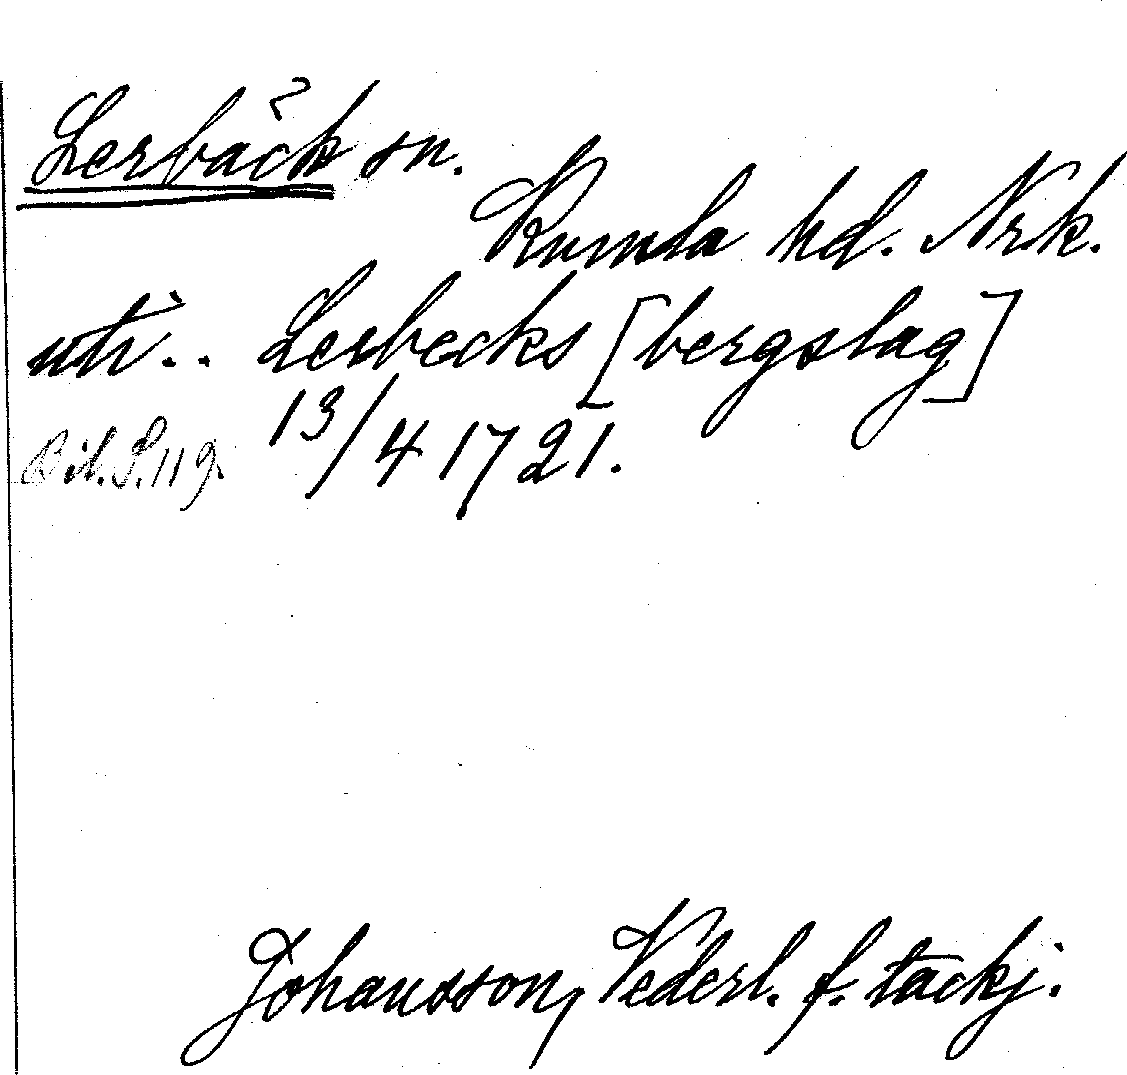 Lerbäck sn.
Kumla hd. Nrk.
uti.. Lerbecks [bergslag]
13/4 1721.
Bil. S. 119.
Johansson, Vederl. f. tackj.